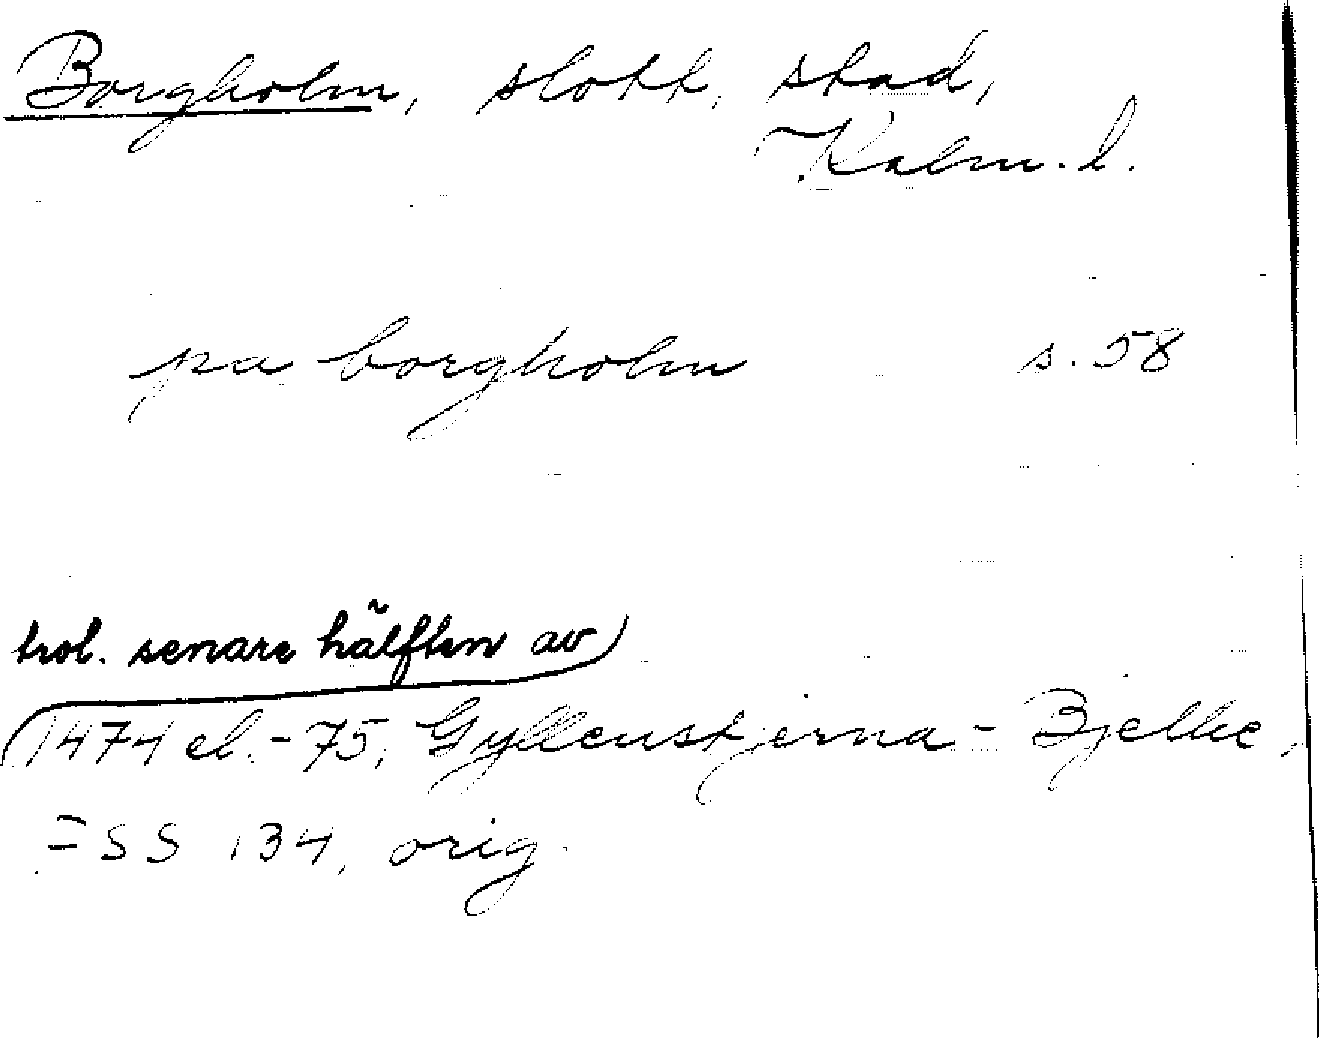 Borgholm, slott, stad,
Kalm. l.
pa borgholm s. 58
trol. senare hälften av
1474 el. -75, Gyllenstjerna - Bjelke,
FSS 134, orig.